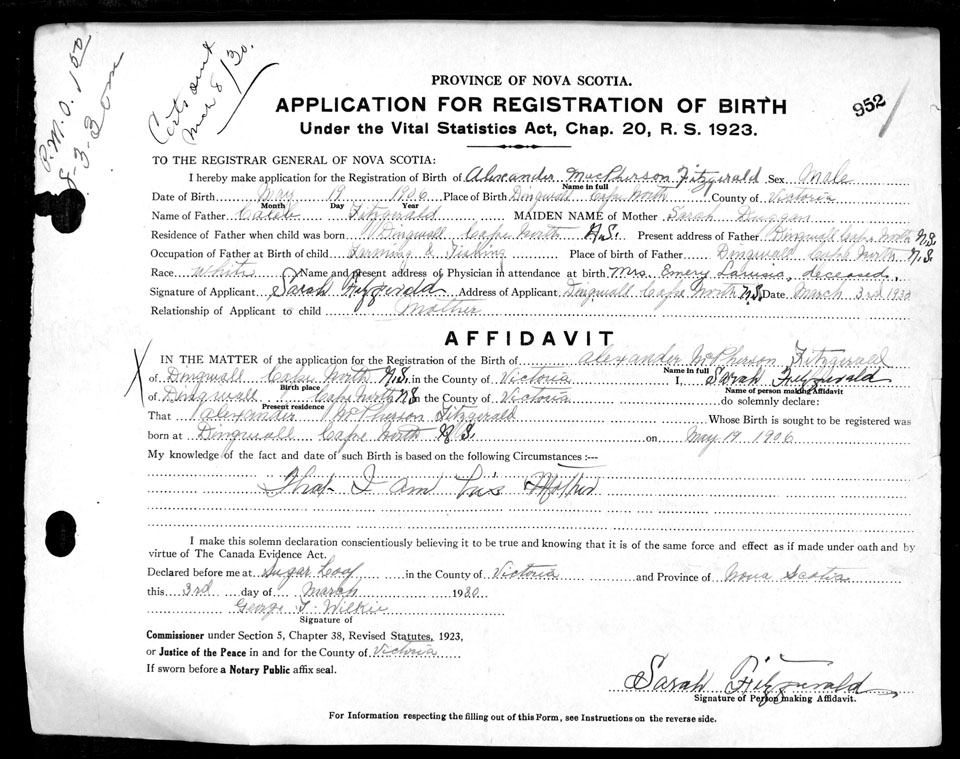 P.M.O. 1.00
8-3-30
Cert. sent
Mch 8/30.
952
PROVINCE OF NOVA SCOTIA.
APPLICATION FOR REGISTRATION OF BIRTH
Under the Vital Statistics Act, Chap. 20, R. S. 1923.
TO THE REGISTRAR GENERAL OF NOVA SCOTIA:
I hereby make application for the Registration of Birth of Alexander MacPherson Fitzgerald Sex Male
Name in full
Date of Birth May 19 1906 Place of Birth Dingwall Cape North County of Victoria
Month Day Year
Name of Father Caleb Fitzgerald MAIDEN NAME of Mother Sarah Duggan
Residence of Father when child was born Dingwall Cape North N.S. Present address of Father Dingwall Cape North N.S.
Occupation of Father at Birth of child Farming & Fishing Place of birth of Father Dingwall Cape North N.S.
Race White Name and present address of Physician in attendance at birth Mrs. Emery deceased.
Signature of Applicant Sarah Fitzgerald Address of Applicant Dingwall Cape North N.S. Date March 3rd 1930
Relationship of Applicant to child Mother
AFFIDAVIT
X
IN THE MATTER of the application for the Registration of the Birth of Alexander McPherson Fitzgerald
Name in full
of Dingwall Cape North N.S. in the County of Victoria I, Sarah Fitzgerald
Birth place Name of person making Affidavit
of Dingwall Cape North N.S. in the County of Victoria do solemnly declare:
Present residence
That Alexander McPherson Fitzgerald Whose Birth is sought to be registered was
born at Dingwall Cape North N.S. on May 19 1906
My knowledge of the fact and date of such Birth is based on the following Circumstances :—
That I am his Mother
I make this solemn declaration conscientiously believing it to be true and knowing that it is of the same force and effect as if made under oath and by
virtue of The Canada Evidence Act.
Declared before me at Sugar Loaf in the County of Victoria and Province of Nova Scotia
this 3rd day of March 1930
George T. Wilkie
Signature of
Commissioner under Section 5, Chapter 38, Revised Statutes, 1923,
or Justice of the Peace in and for the County of Victoria
If sworn before a Notary Public affix seal.
Sarah Fitzgerald
Signature of Person making Affidavit.
For Information respecting the filling out of this Form, see Instructions on the reverse side.